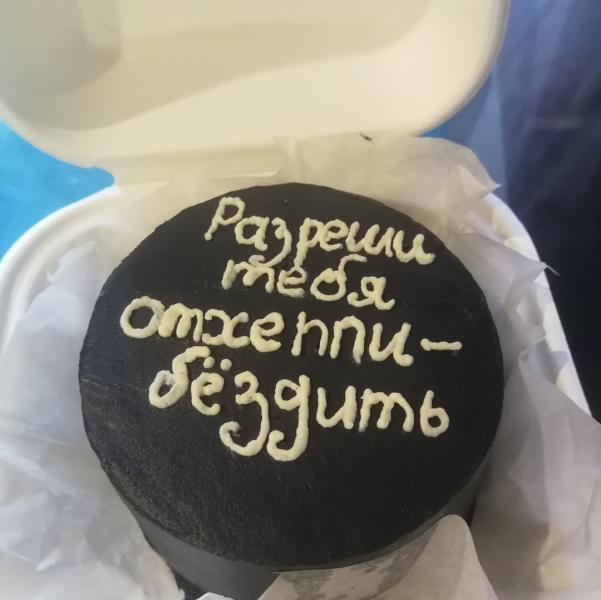 Разреши
тебя
отхеппи-
бёздить